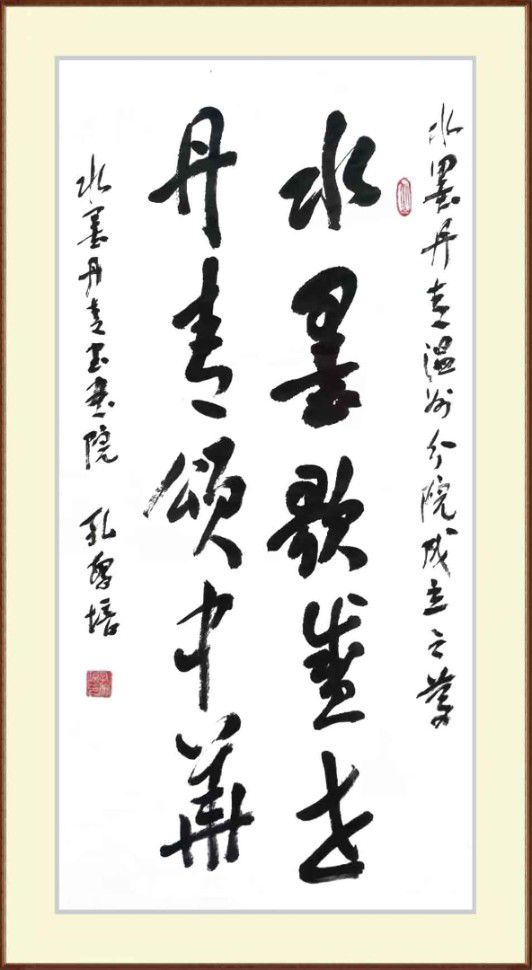 水墨丹青温州分院成立之荣
水墨歌盛世
丹青颂中华
水墨丹青书画院 孔